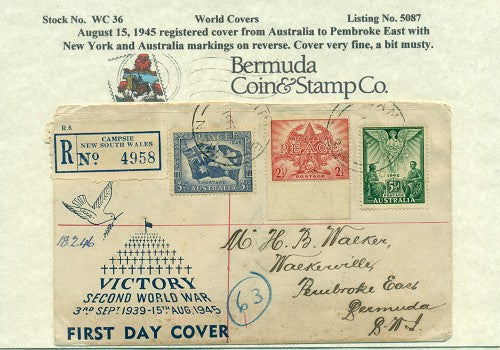 Stock No. WC 36 World Covers Listing No. 5087
August 15, 1945 registered cover from Australia to Pembroke East with
New York and Australia markings on reverse. Cover very fine, a bit musty.
Bermuda
Coin&Stamp Co.
R.6
CAMPSIE
NEW SOUTH WALES
R No 4958
PEACE
POSTAGE
AUSTRALIA
PEACE
POSTAGE
2½
1945
5½D
POSTAGE
AUSTRALIA
18.2.46
VICTORY
SECOND WORLD WAR
3RD SEPT 1939-15TH AUG. 1945
FIRST DAY COVER
63
Mr H. B. Walker,
Walkerville,
Pembroke East
Bermuda
B.W.I.